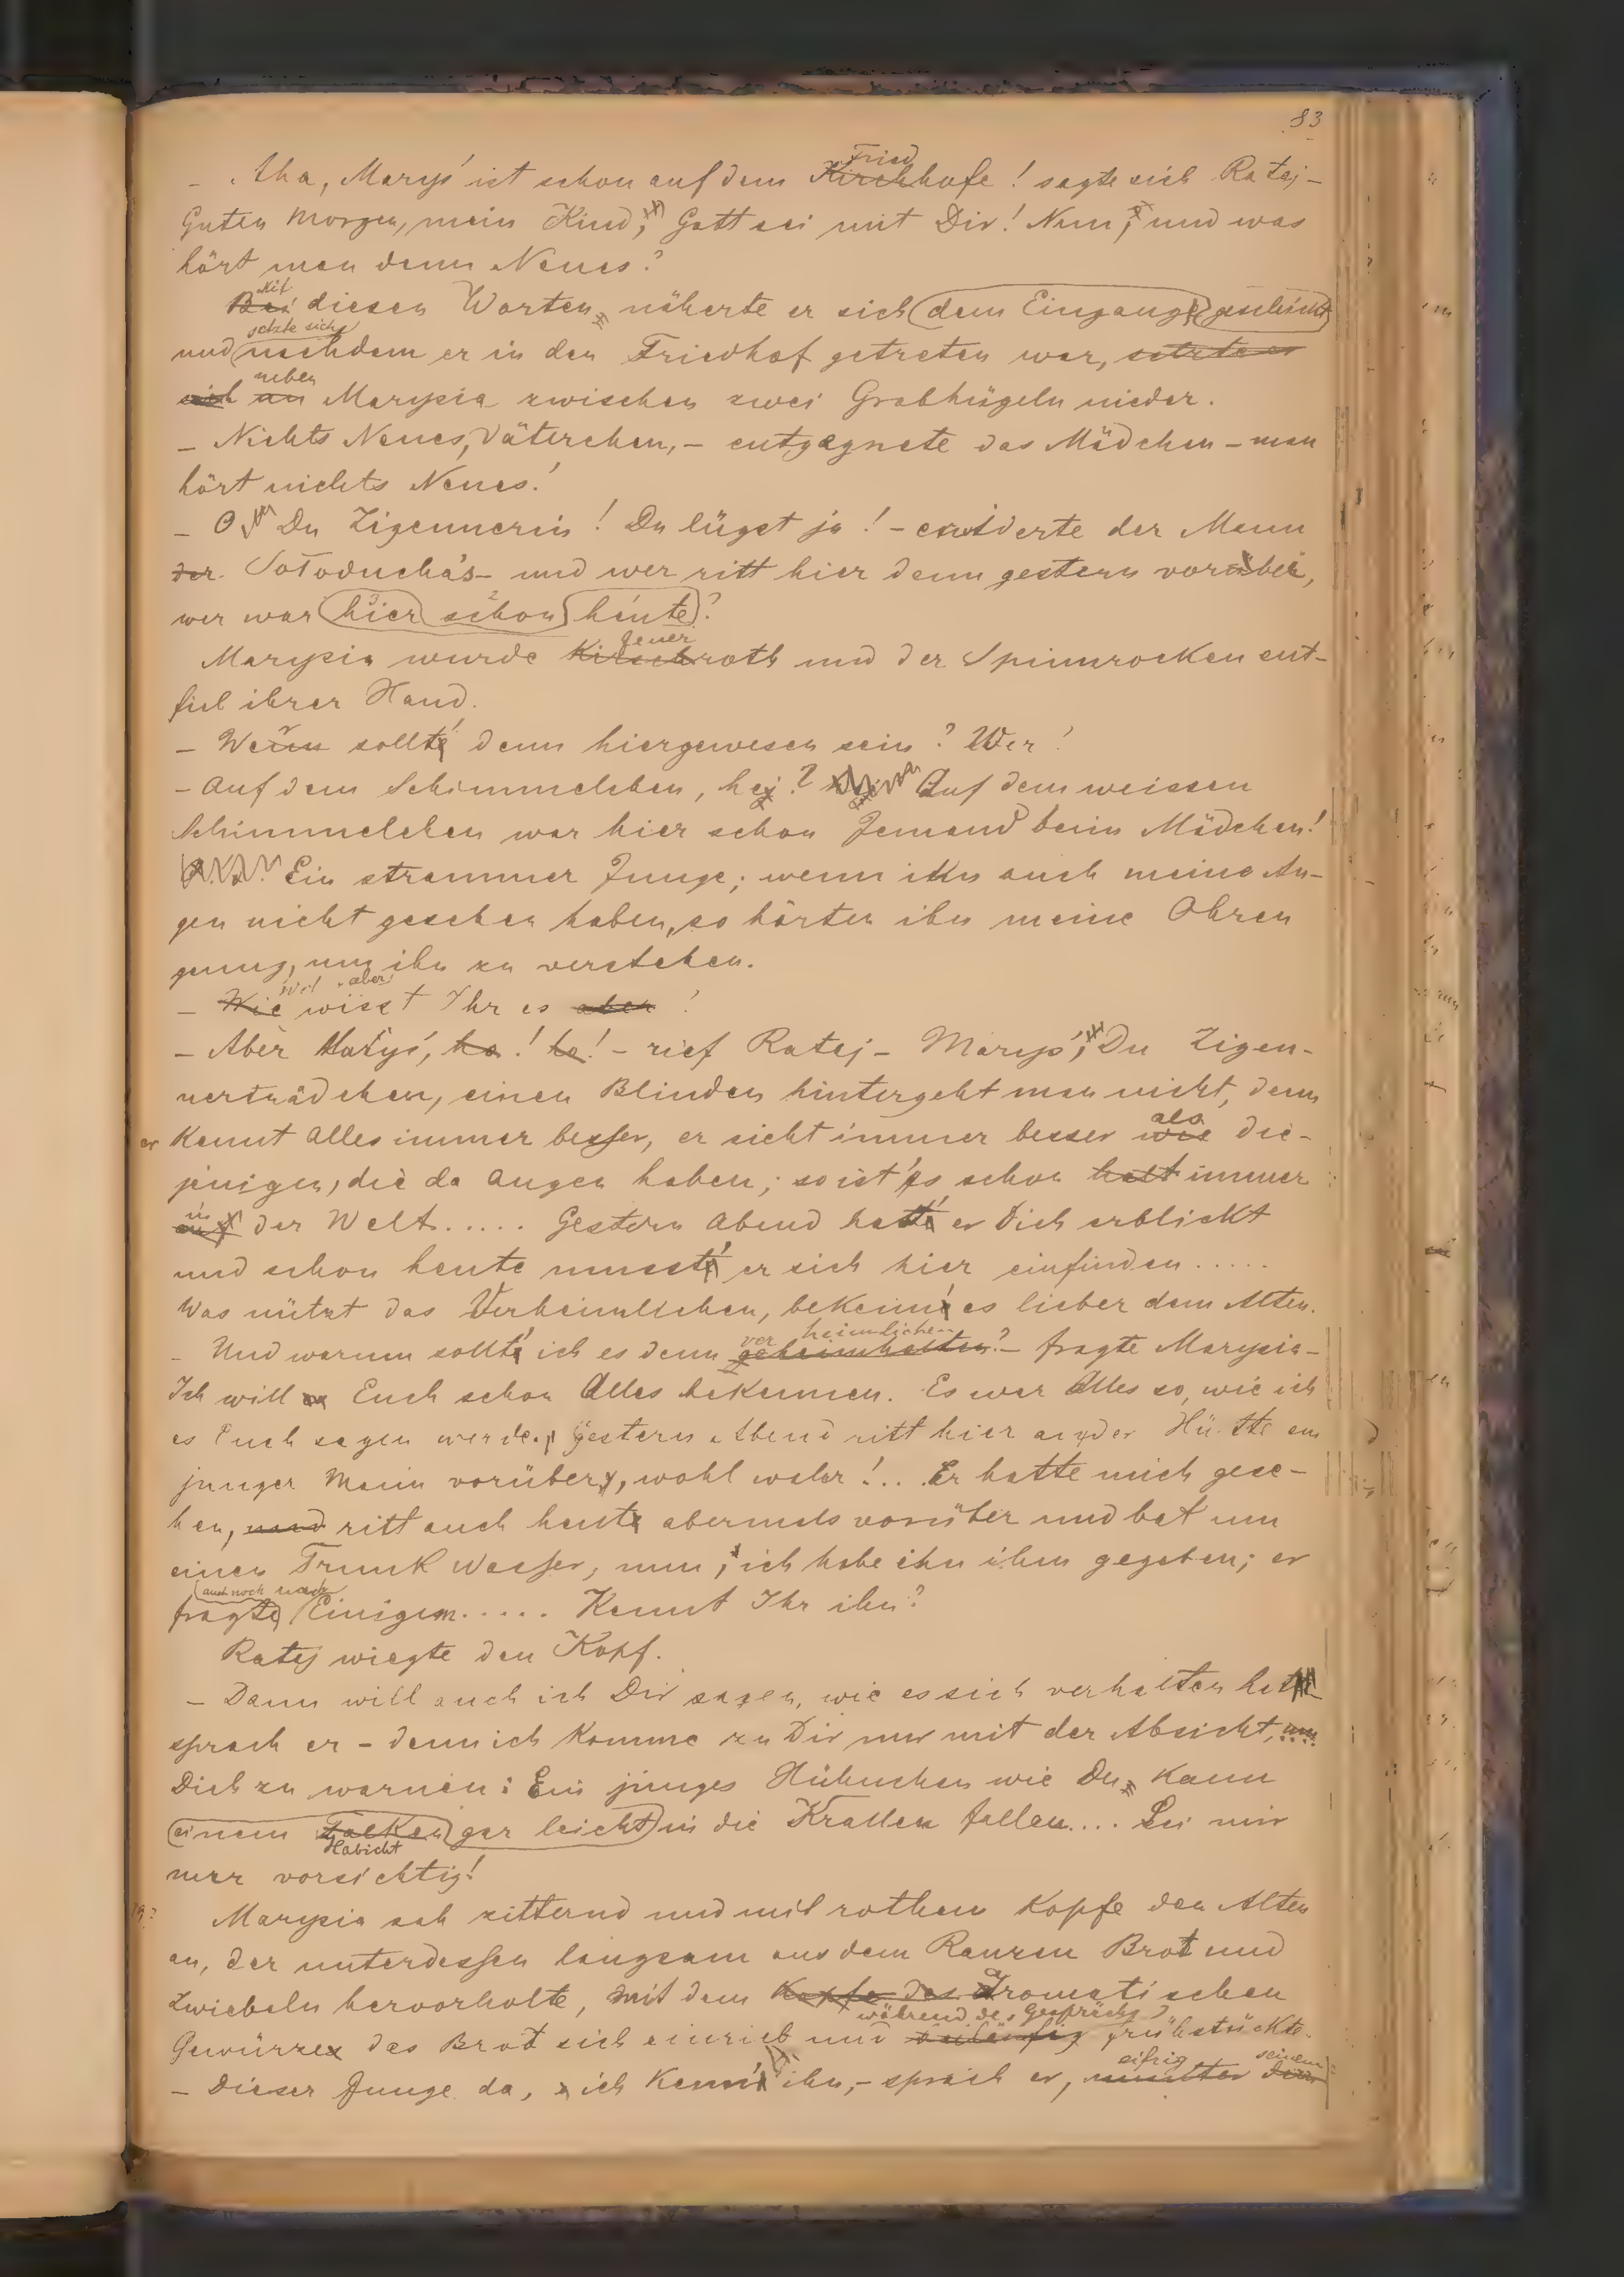 83
- Aha, Maryś ist schon auf dem Kirchhofe! sagte sich Ratej -
Fried
Guten Morgen, mein Kind, Gott sei mit Dir! Nun, und was
hört man denn Neues?
Mit
Bei diesen Worten näherte er sich dem Eingange geschickt
setzte sich
und nachdem er in den Friedhof getreten war, setzte er
neben
sich an Marysia zwischen zwei Grabhügeln nieder.
- Nichts Neues, Väterchen, - entgegnete das Mädchen - man
hört nichts Neues!
- O Du Zigeunerin! Du lügst ja! - erwiderte der Mann
der Sołoducha's - und wer ritt hier denn gestern vorüber,
wer war hier schon heute?
3 2
feuer
Marysia wurde kirschroth und der Spinnrocken ent-
fiel ihrer Hand.
- Wer sollt' denn hiergewesen sein? Wer?
- Auf dem Schimmelchen, hej? Auf dem weissen
Schimmelchen war hier schon Jemand beim Mädchen!
Ein strammer Junge; wenn ihn auch meine Au-
gen nicht gesehen haben, so hörten ihn meine Ohren
genug, um ihn zu verstehen.
aber
- Wie wisst Ihr es aber?
- Aber Maryś, ha! ha! - rief Ratej - Maryś, Du Zigeu-
nermädchen, einen Blinden hintergeht man nicht, denn
er kennt Alles immer besser, er sieht immer besser wie die-
als
jenigen, die da Augen haben; so ist's schon halt immer
in
auf der Welt..... Gestern Abend hatt' er Dich erblickt
und schon heute musst' er sich hier einfinden.....
Was nützt das Verheimlichen, bekenn' es lieber dem Alten.
ver heimlichen
- Und warum sollt' ich es denn geheimhalten? - fragte Marysia -
Ich will es Euch schon Alles bekennen. Es war Alles so, wie ich
es Euch sagen werde. Gestern Abend ritt hier an der Hütte ein
junger Mann vorüber, wohl wahr!.. Er hatte mich gese-
hen, und ritt auch heute abermals vorüber und bat um
einen Trunk Wasser, nun, ich habe ihn ihm gegeben; er
auch noch nach
fragte Einigem..... Kennt Ihr ihn?
Ratej wiegte den Kopf.
- Dann will auch ich Dir sagen, wie es sich verhalten hat
sprach er - denn ich komme zu Dir nur mit der Absicht, um
Dich zu warnen: Ein junges Hühnchen wie Du kann
einem Falken gar leicht in die Krallen fallen.... Sei mir
Habicht
nur vorsichtig!
Marysia sah zitternd und mit rothem Kopfe den Alten
an, der unterdessen langsam aus dem Ranzen Brot und
Zwiebeln hervorholte, mit dem Kopfe des aromatischen
während des Gesprächs
Gewürzes das Brot sich einrieb und frühstückte.
eifrig seinem
- Dieser Junge da, ich kenn' ihn, - sprach er, munter den